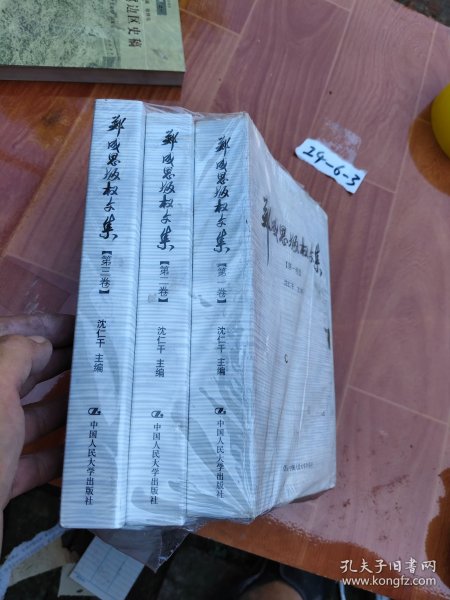 边区史稿
郑成思版权文集
【第三卷】
沈仁干 主编
中国人民大学出版社
郑成思版权文集
【第二卷】
沈仁干 主编
中国人民大学出版社
郑成思版权文集
【第一卷】
沈仁干 主编
中国人民大学出版社
郑成思版权文集
【第一卷】
沈仁干 主编
中国人民大学出版社
24-6-3
孔夫子旧书网
www.kongfz.com